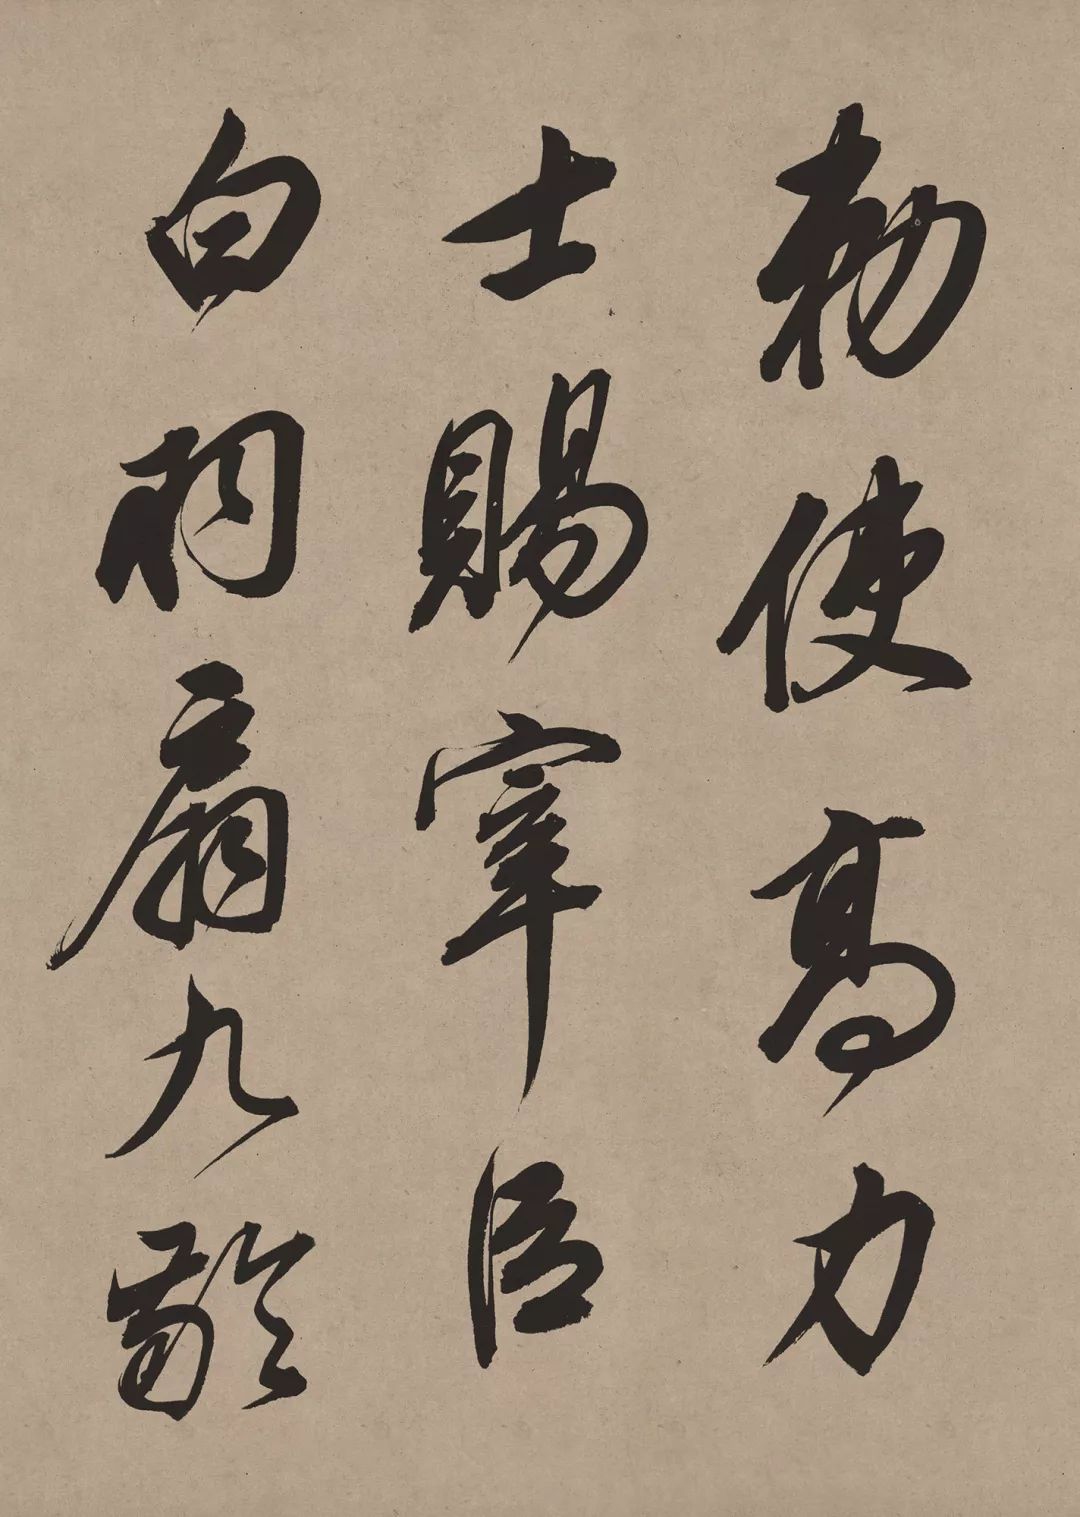 勅使高力
士賜宰臣
白羽扇九齡